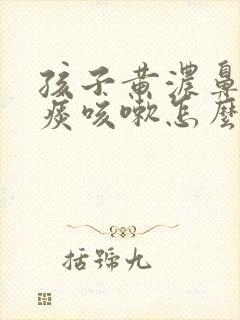 孩子黄濃鼻
痰咳嗽怎麼
括號九